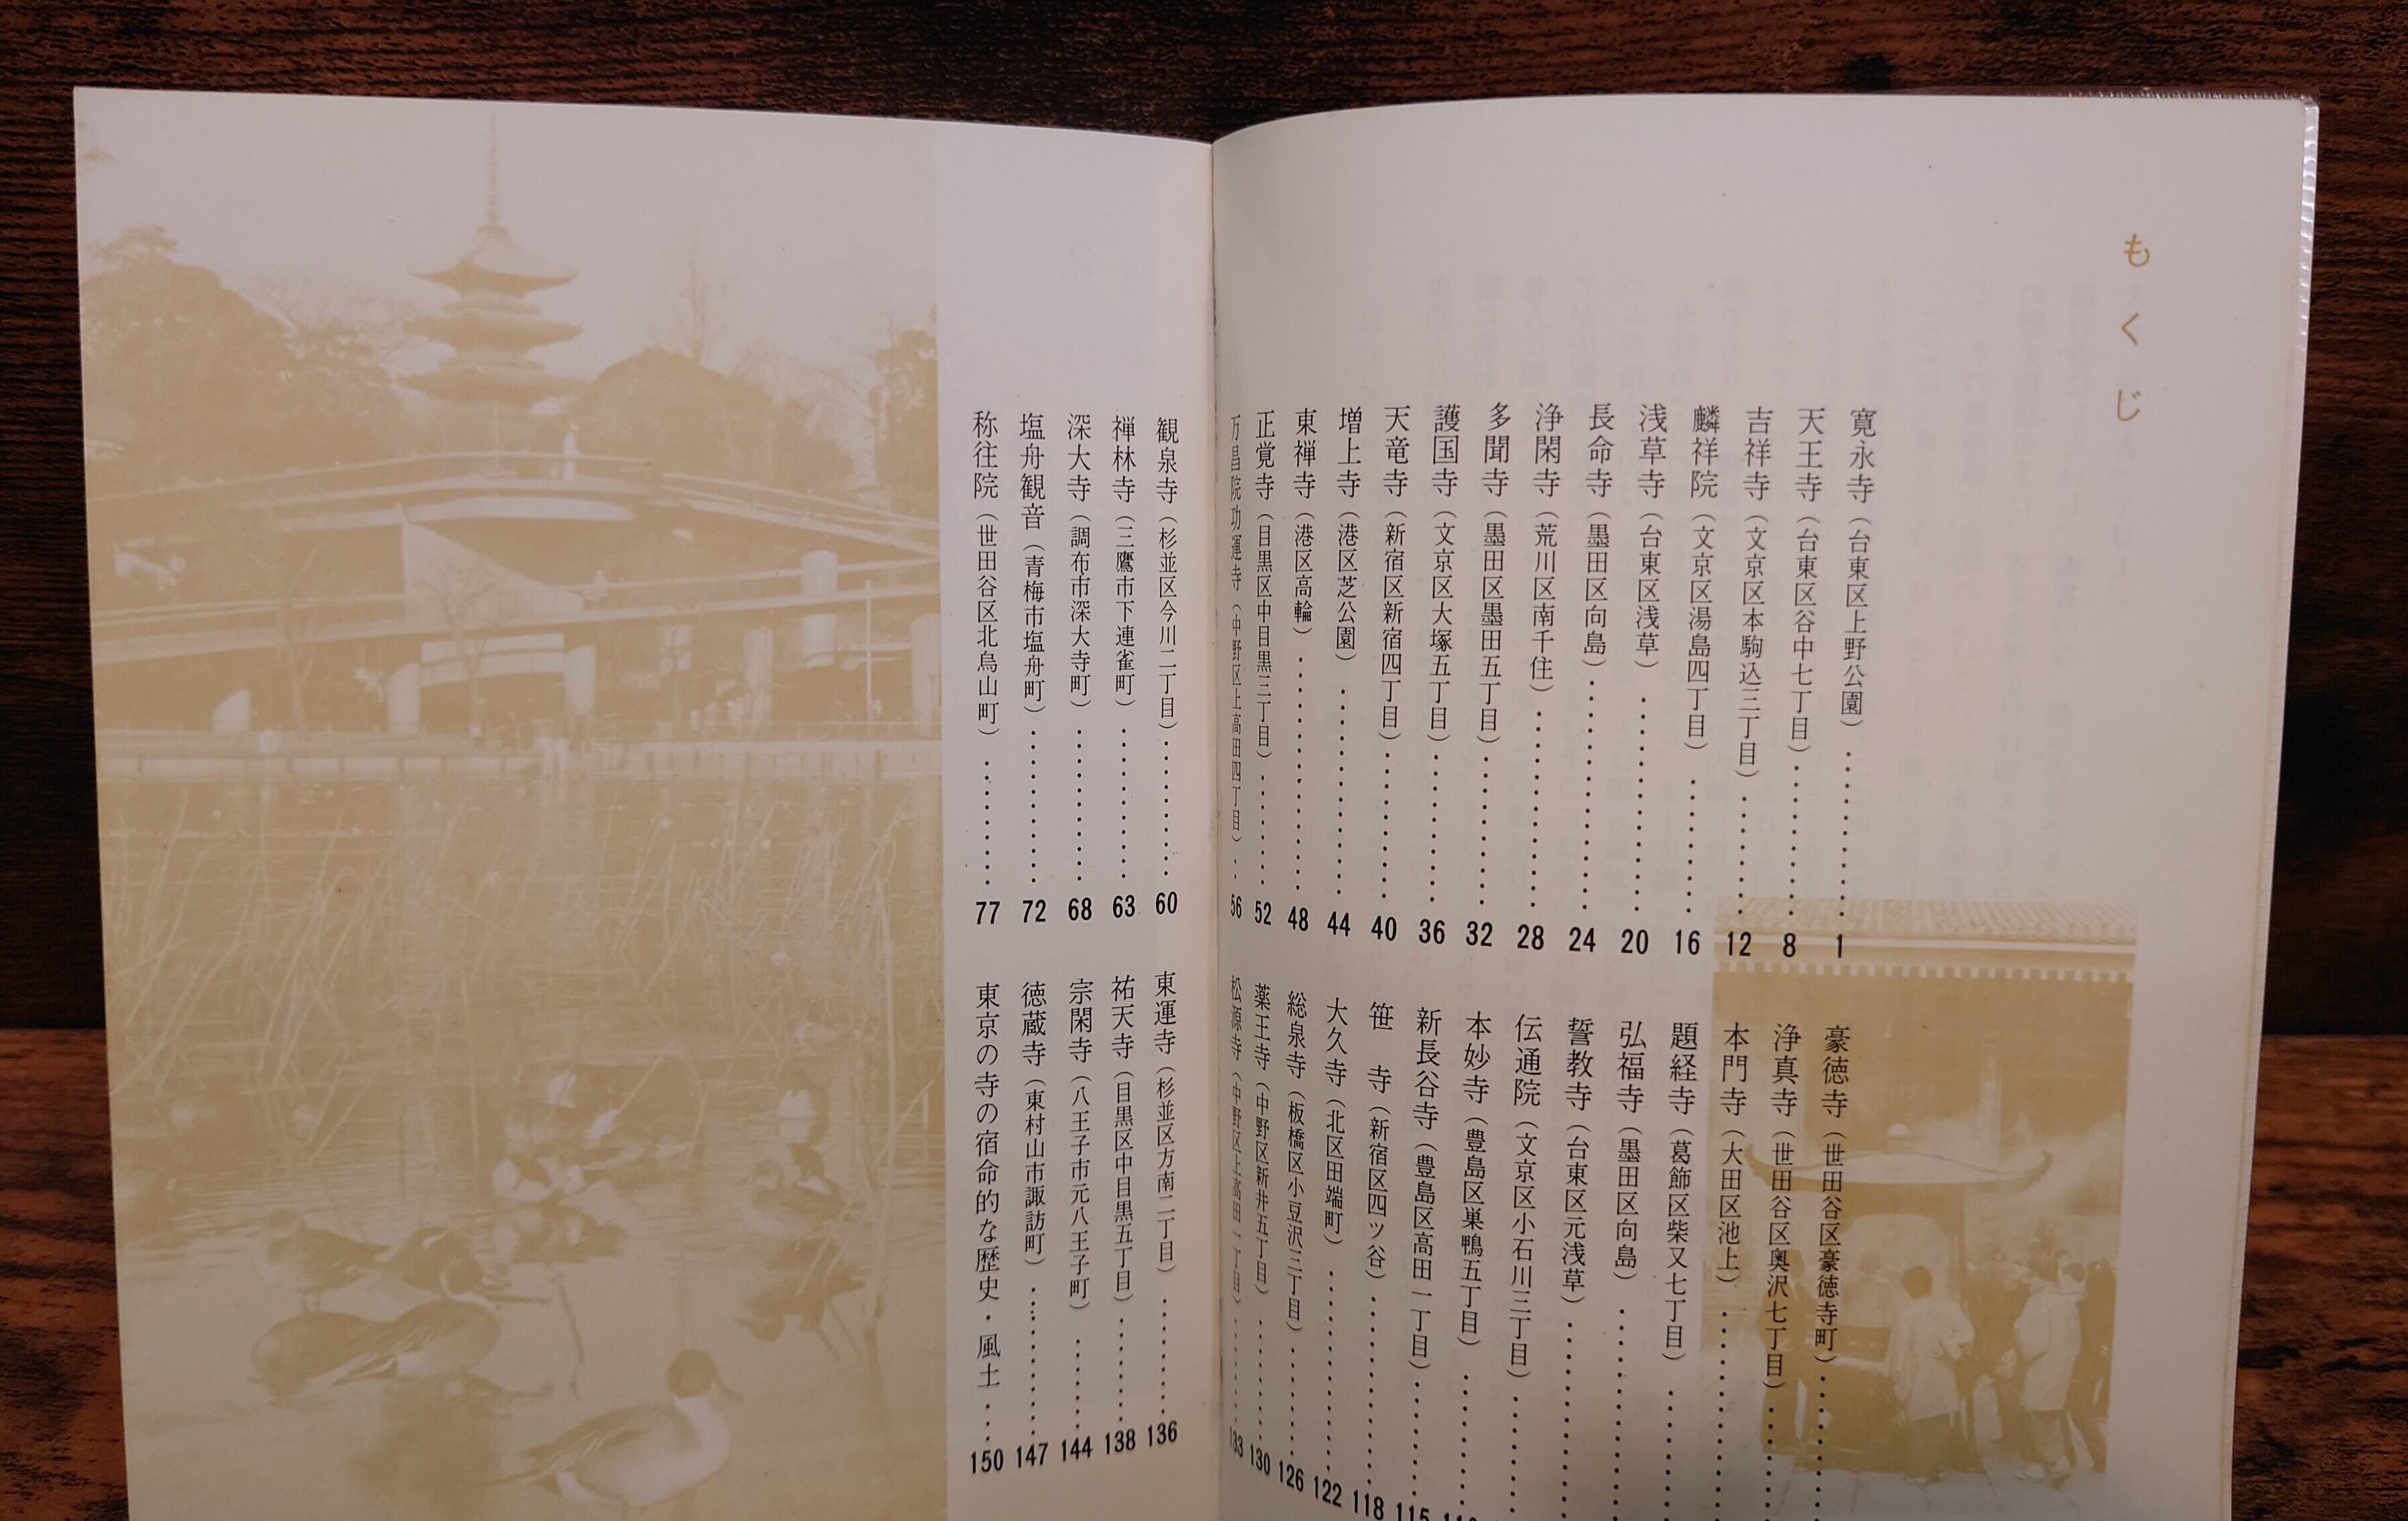 もくじ
寛永寺（台東区上野公園）…………1
天王寺（台東区谷中七丁目）…………8
吉祥寺（文京区本駒込三丁目）…………12
麟祥院（文京区湯島四丁目）…………16
浅草寺（台東区浅草）…………20
長命寺（墨田区向島）…………24
浄閑寺（荒川区南千住）…………28
多聞寺（墨田区墨田五丁目）…………32
護国寺（文京区大塚五丁目）…………36
天竜寺（新宿区新宿四丁目）…………40
増上寺（港区芝公園）…………44
東禅寺（港区高輪）…………48
正覚寺（目黒区中目黒三丁目）…………52
万昌院功運寺（中野区上高田四丁目）…56
観泉寺（杉並区今川二丁目）…………60
禅林寺（三鷹市下連雀町）…………63
深大寺（調布市深大寺町）…………68
塩舟観音（青梅市塩舟町）…………72
称往院（世田谷区北烏山町）…………77
豪徳寺（世田谷区豪徳寺町）…………
浄真寺（世田谷区奥沢七丁目）…………
本門寺（大田区池上）…………
題経寺（葛飾区柴又七丁目）…………
弘福寺（墨田区向島）…………
誓教寺（台東区元浅草）…………
伝通院（文京区小石川三丁目）…………
本妙寺（豊島区巣鴨五丁目）…………
新長谷寺（豊島区高田一丁目）…………115
笹寺（新宿区四ッ谷）…………118
大久寺（北区田端町）…………122
総泉寺（板橋区小豆沢三丁目）…………126
薬王寺（中野区新井五丁目）…………130
松源寺（中野区上高田一丁目）…………133
東運寺（杉並区方南二丁目）…………136
祐天寺（目黒区中目黒五丁目）…………138
宗閑寺（八王子市元八王子町）…………144
徳蔵寺（東村山市諏訪町）…………147
東京の寺の宿命的な歴史・風土…150